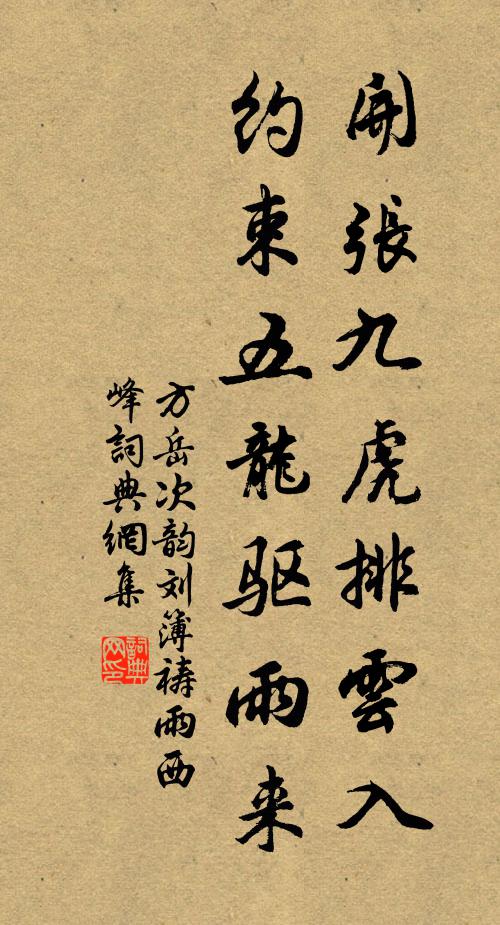 開張九虎排雲入
約束五龍驱雨来
方岳次韵刘簿祷雨西
峰詞典網集
詞典
网印